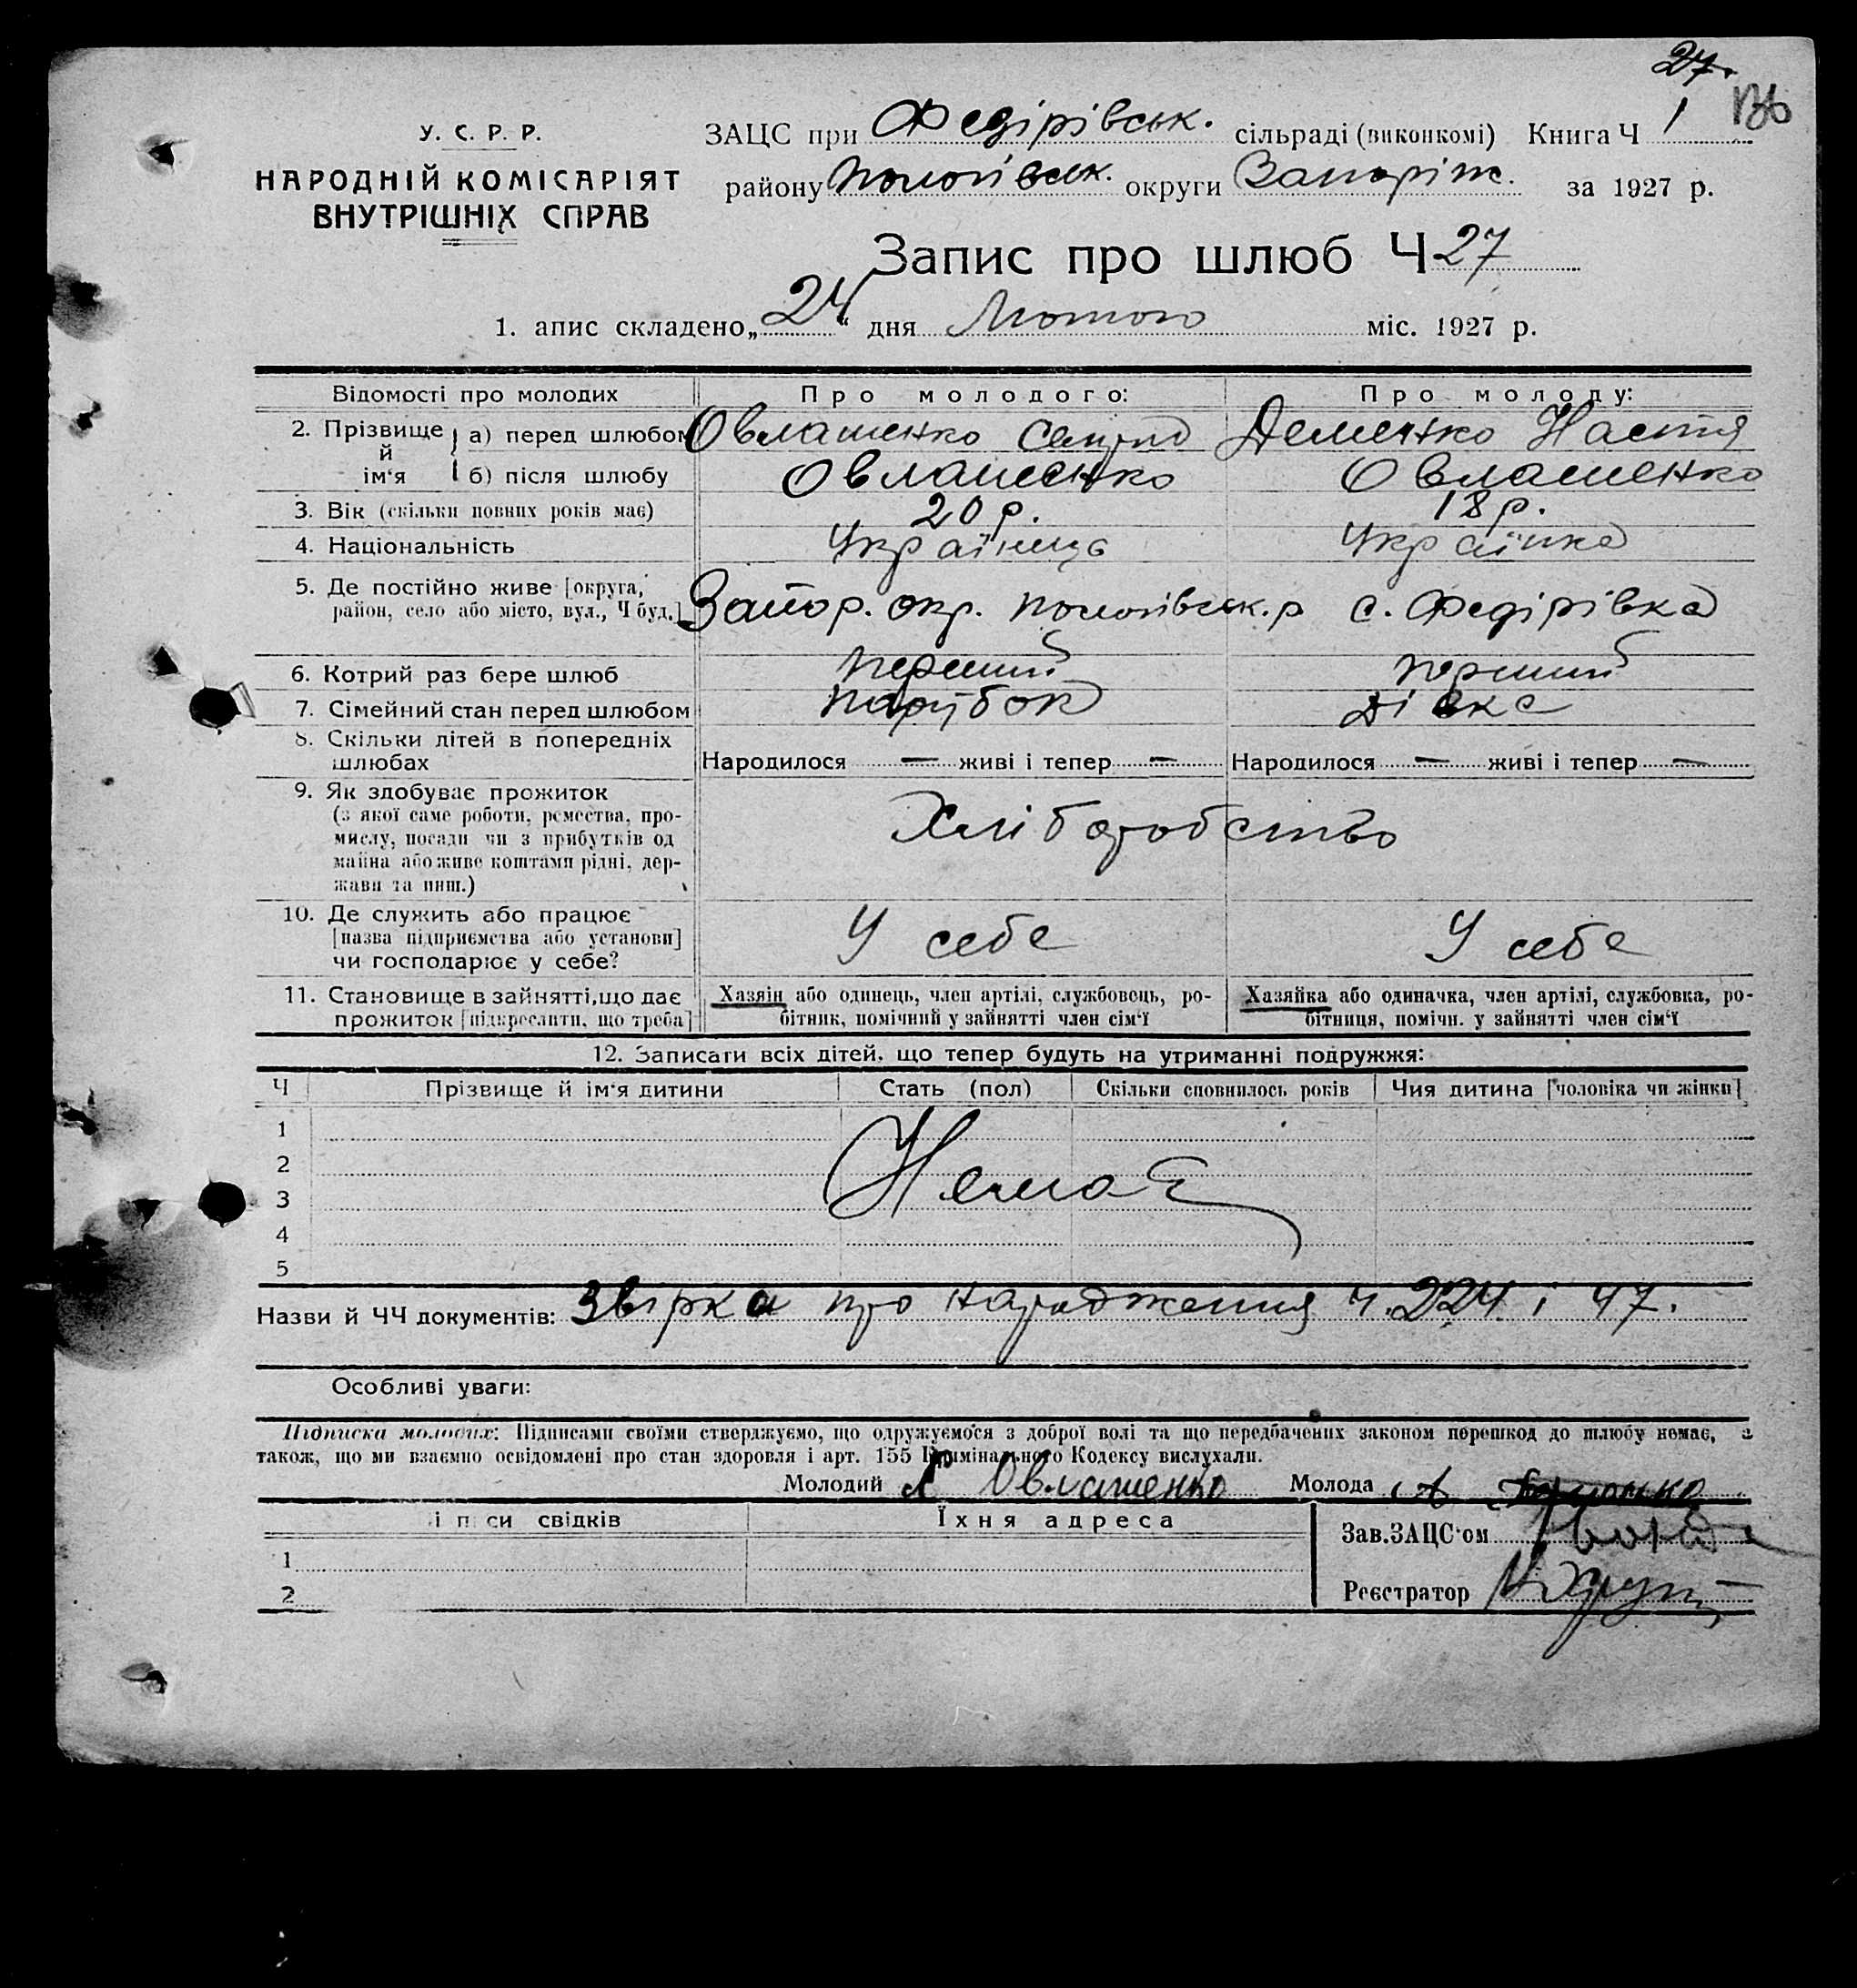 27.
У. С. Р. Р.
ЗАЦС при Федірівськ. сільраді (виконкомі) Книга Ч 1
НАРОДНІЙ КОМІСАРІЯТ
району Пологівськ. округи Запоріж. за 1927 р.
ВНУТРІШНІХ СПРАВ
Запис про шлюб Ч 27
1. апис складено „24“ дня Лютого міс. 1927 р.
Відомості про молодих Про молодого: Про молоду:
2. Прізвище й ім'я а) перед шлюбом Овлашенко Деменко Настя
б) після шлюбу Овлашенко Овлашенко
3. Вік (скільки повних років має) 20 р. 18 р.
4. Національність Українець Українка
5. Де постійно живе [округа,
район, село або місто, вул., Ч буд.] Запор. окр. Пологівськ. р с. Федірівка
6. Котрий раз бере шлюб перший перший
7. Сімейний стан перед шлюбом парубок дівка
8. Скільки дітей в попередніх
шлюбах Народилося — живі і тепер — Народилося — живі і тепер —
9. Як здобуває прожиток
(з якої саме роботи, ремества, про-
мислу, посади чи з прибутків од
майна або живе коштами рідні, дер-
жави та инш.)
Хліборобство
10. Де служить або працює
[назва підприємства або установи]
чи господарює у себе?
У себе У себе
11. Становище в зайнятті, що дає
прожиток [підкреслити, що треба]
Хазяїн або одинець, член артілі, службовець, ро-
бітник, помічний у зайнятті член сім'ї
Хазяйка або одиначка, член артілі, службовка, ро-
бітниця, помічн. у зайнятті член сім'ї
12. Записати всіх дітей, що тепер будуть на утриманні подружжя:
Ч Прізвище й ім'я дитини Стать (пол) Скільки сповнилось років Чия дитина [чоловіка чи жінки]
1
2
3
4
5
Немає
Назви й ЧЧ документів: Звірка про народження ч. 224 і 47.
Особливі уваги:
Підписка молодих: Підписами своїми стверджуємо, що одружуємося з доброї волі та що передбачених законом перешкод до шлюбу немає, а
також, що ми взаємно освідомлені про стан здоровля і арт. 155 Кримінального Кодексу вислухали.
Молодий Овлашенко Молода А
і п си свідків Їхня адреса
Зав. ЗАЦС'ом
1
2
Реєстратор